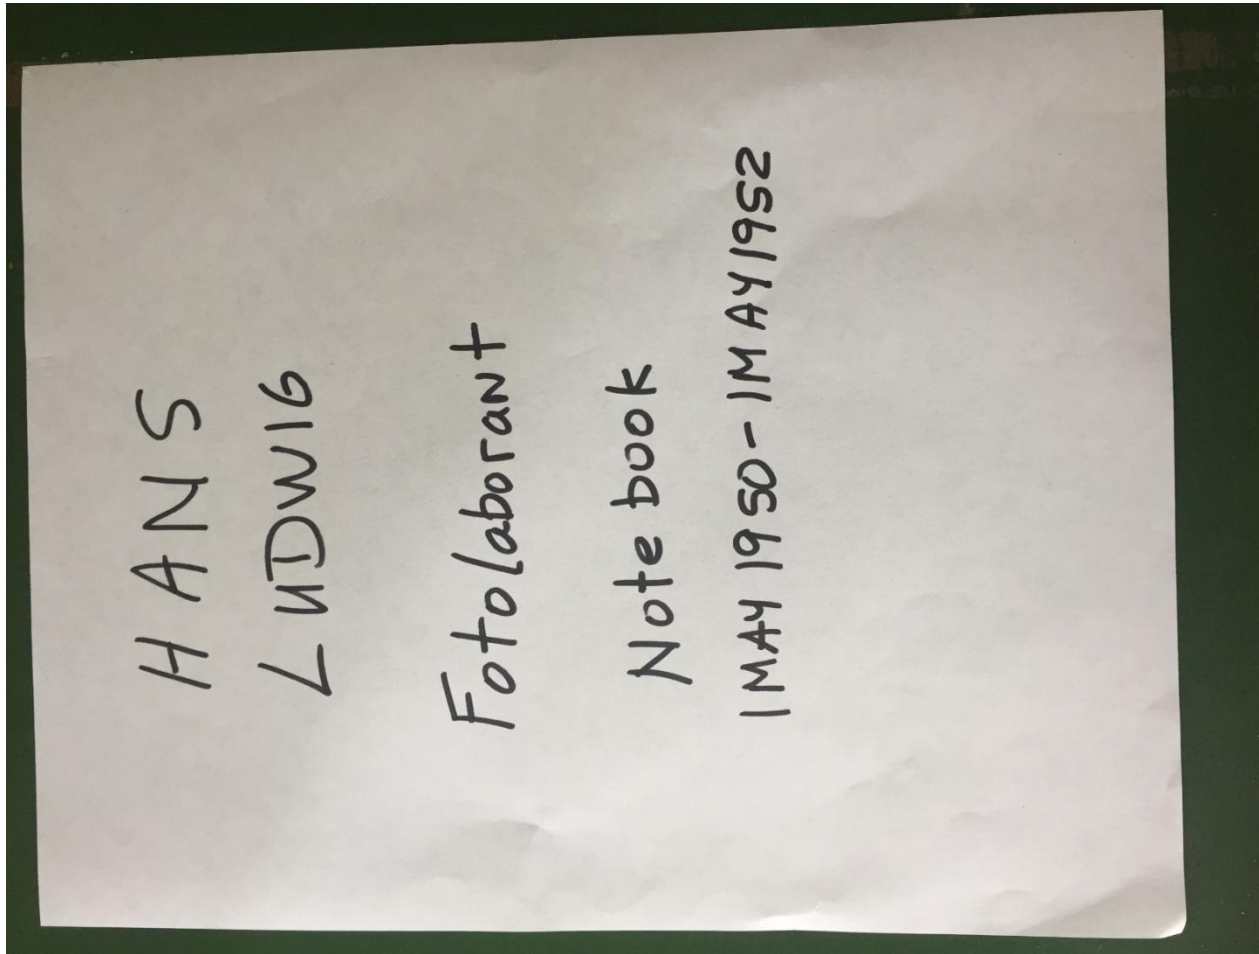 HANS
LUDWIG
Fotolaborant
Note book
1MAY 1950-1MAY1952